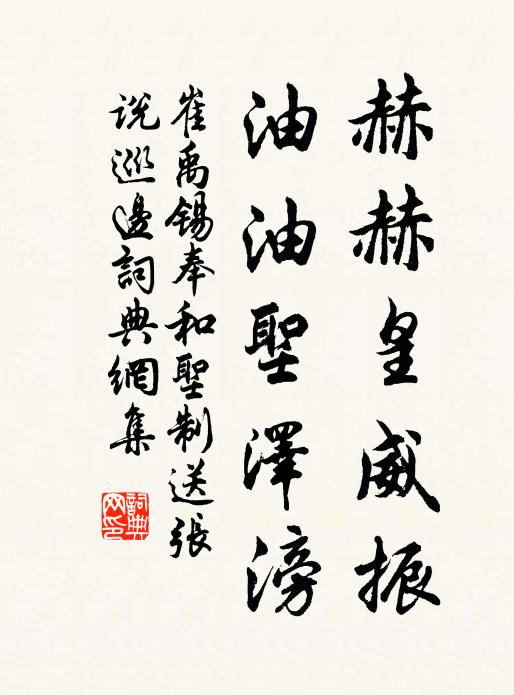 赫赫皇威振
油油聖澤滂
崔禹錫奉和聖制送張
說巡邊詞典網集
詞典
网印